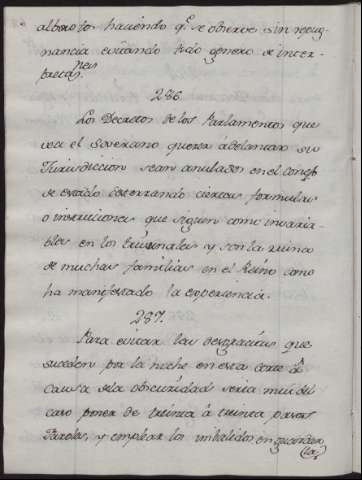 alborotos haciendo q.e se observe sin repug
nancia evitando todo genero de inter
pretas.nes
286.
Los Decretos de los Parlamentos que
vea el Soverano querer adelantar su
Jurisdiccion sean anulados en el consejo
de estado desterrando ciertas formulas
o instrucciones que siguen como invaria
bles en los tribunales y son la ruina
de muchas familias en el Reino como
ha manifestado la experiencia.
287.
Para evitar las desgracias que
suceden por la noche en esta corte à
causa de la obscuridad seria mui del
caso poner de treinta à treinta pasos
Faroles, y emplear los imbalidos en guardar
(la)